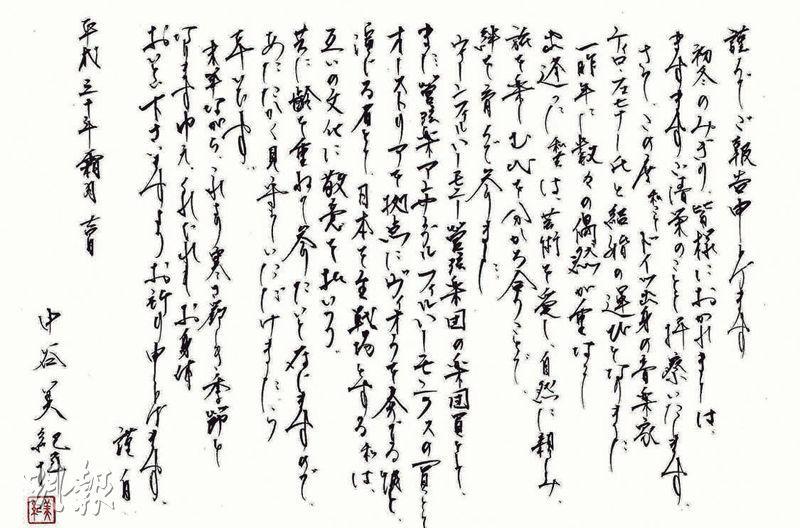 謹んでご報告申し上げます
初冬のみぎり、皆様におかれましては、
ますますご清栄のことと拝察いたします。
さて、この度私ことドイツ出身の音楽家
ティロ・フェヒナー氏と結婚の運びとなりました。
一昨年に数々の偶然が重なり
出逢った私達は、芸術を愛し、自然に親しみ、
旅を楽しむ心を分かち合うことで、
絆を育んで参りました。
ウィーンフィルハーモニー管弦楽団の楽団員として、
また管弦楽アンサンブル フィルハーモニクスの一員として
オーストリアを拠点にヴィオラを奏でる彼と、
演じる者として日本を主戦場とする私は、
互いの文化に敬意を払いつつ、
共に齢を重ねて参りたいと存じますので
あたたかく見守っていただけましたら
幸いです。
末筆ながら、これより寒さ厳しき季節と
なりますゆえ、くれぐれもお身体
おいとい下さいますようお祈り申し上げます。
謹白
平成三十年霜月吉日
中谷美紀
美紀
明報